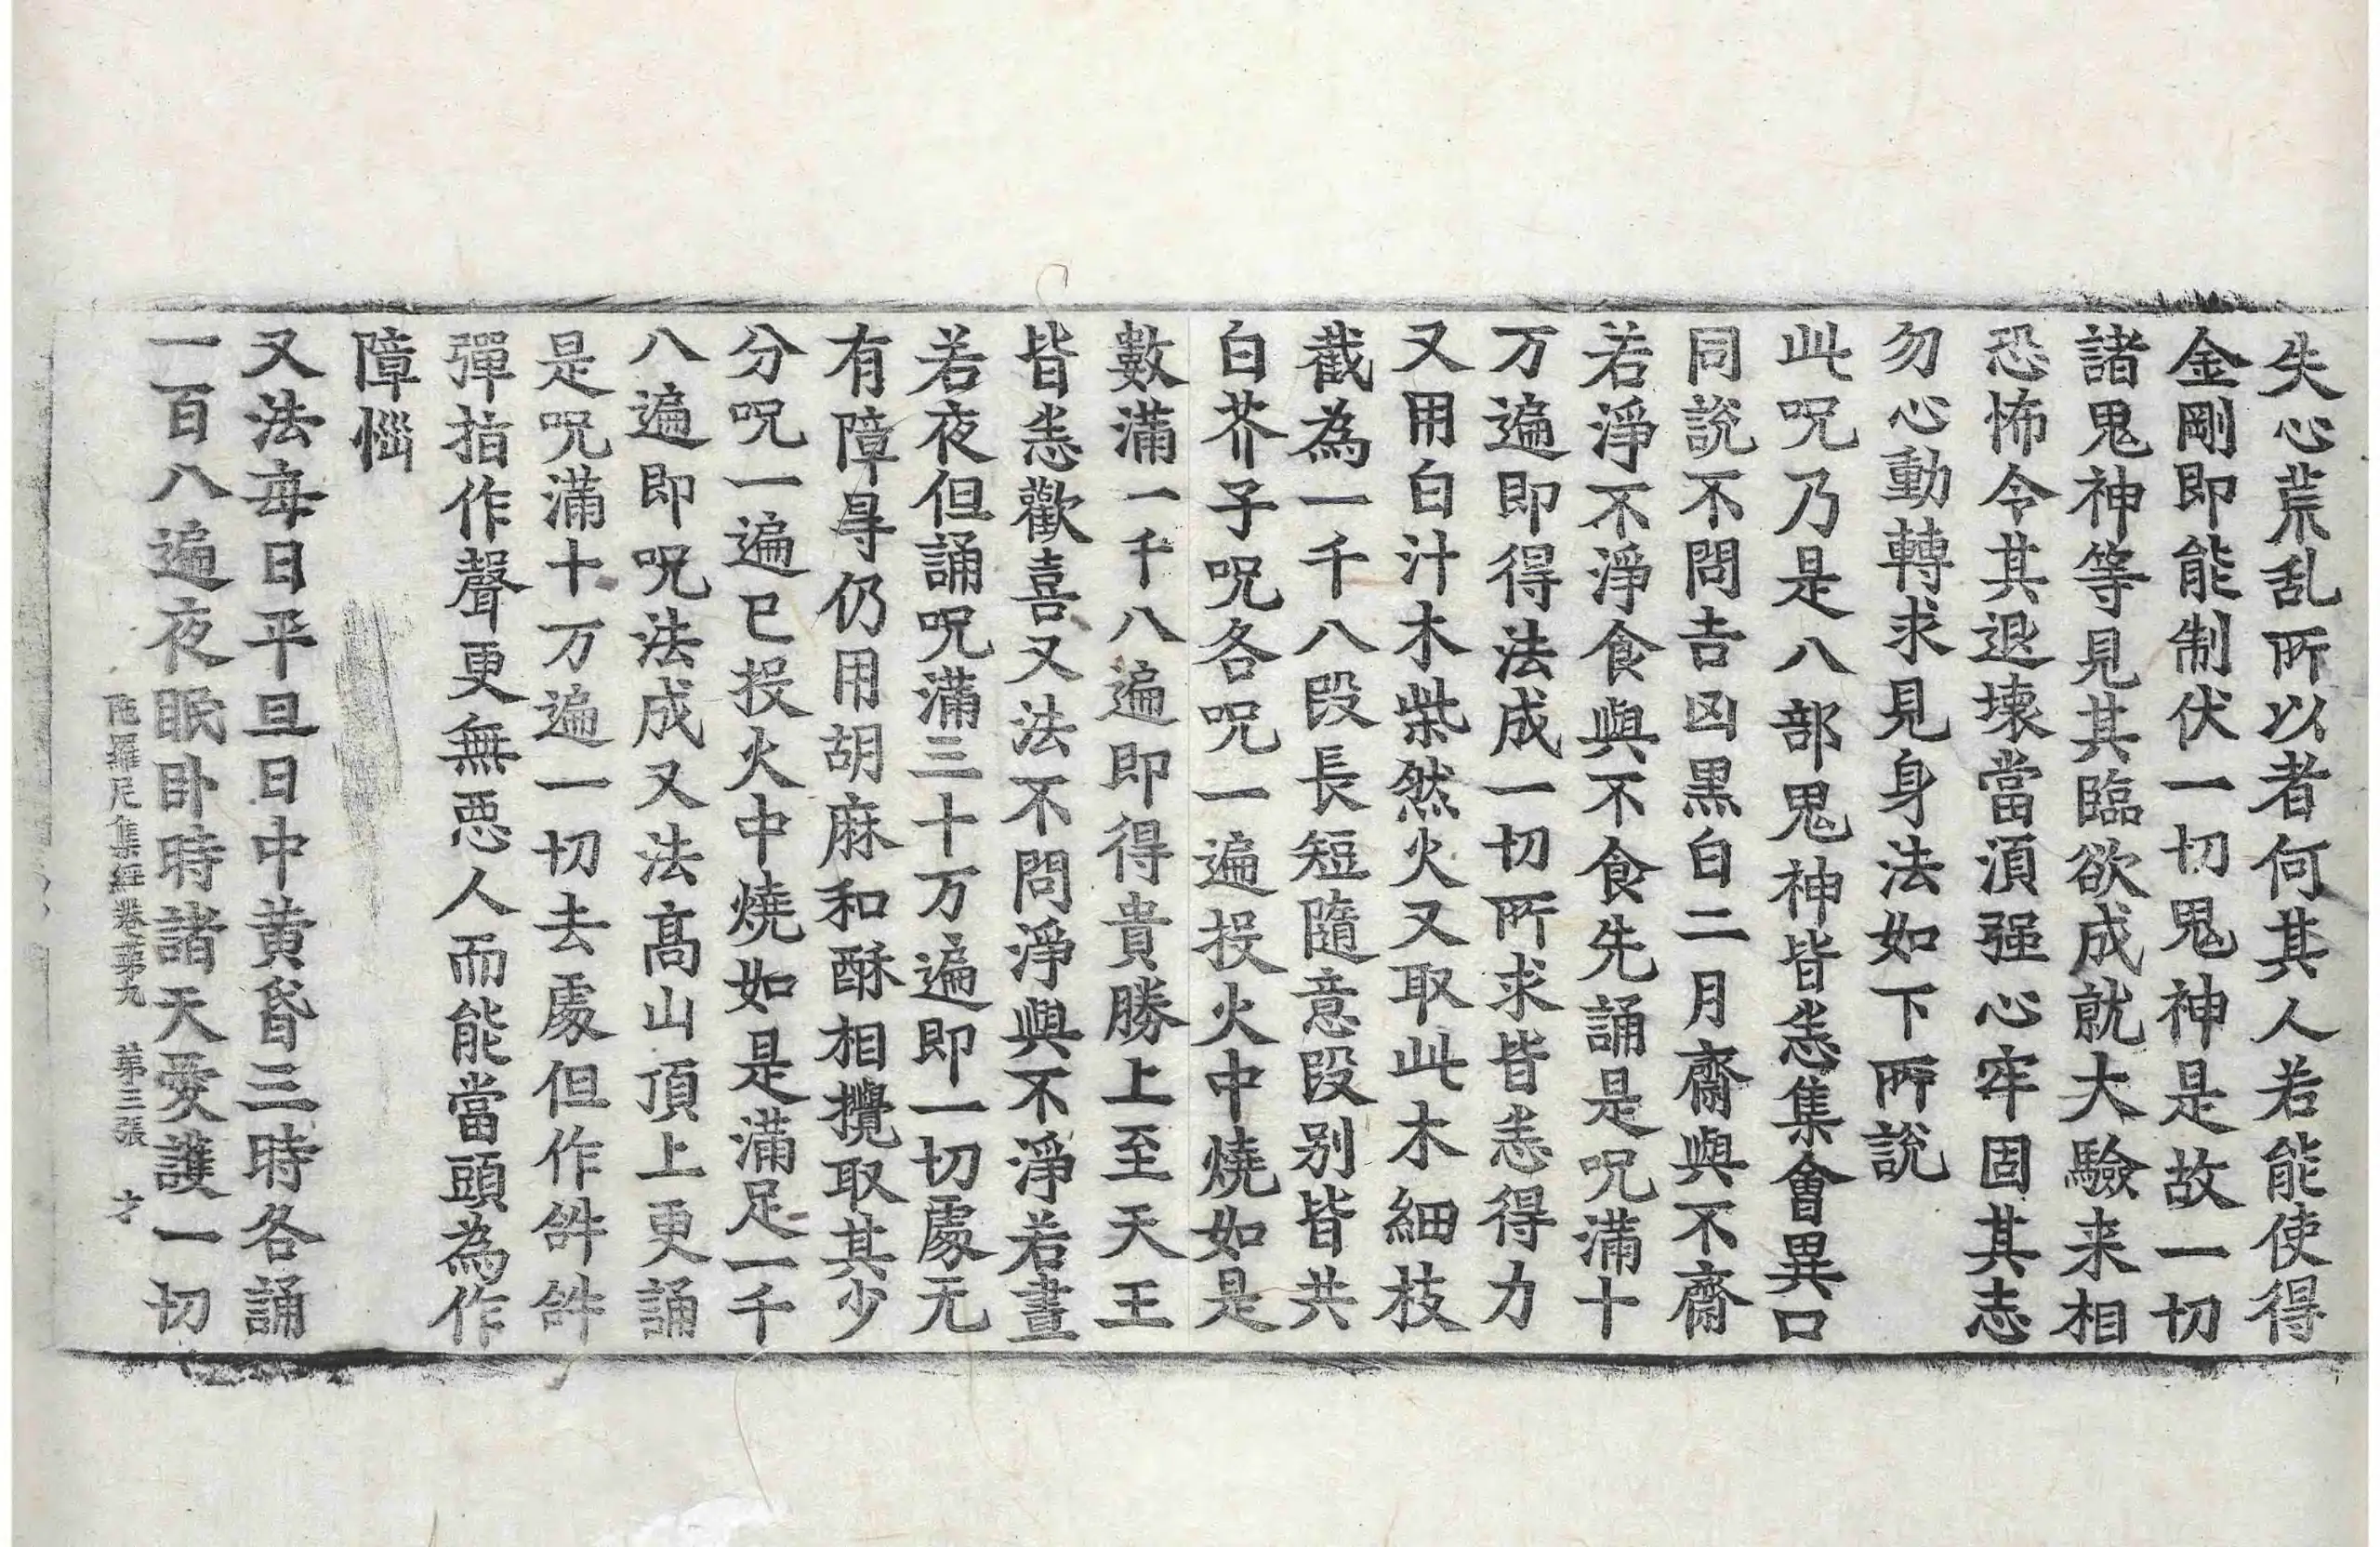 失心荒乱所以者何其人若能使得
金剛即能制伏一切鬼神是故一切
諸鬼神等見其臨欲成就大驗来相
恐怖令其退壞當湏强心牢固其志
勿心動轉求見身法如下所說
此呪乃是八部鬼神皆悉集會異口
同說不問吉凶黒白二月齋與不齋
若淨不淨食與不食先誦是呪滿十
万遍即得法成一切所求皆悉得力
又用白汁木柴然火又取此木細枝
截為一千八段長短隨意段别皆共
白芥子呪各呪一遍投火中燒如是
數滿一千八遍即得貴勝上至天王
皆悉歡喜又法不問淨與不淨若晝
若夜但誦呪滿三十万遍即一切處无
有障㝵仍用胡麻和酥相攪取其少
分呪一遍已投火中燒如是滿足一千
八遍即呪法成又法髙山頂上更誦
是呪滿十万遍一切去處但作𠷐𠷐
彈指作聲更無惡人而能當頭為作
障惱
又法每日平旦日中黄昏三時各誦
一百八遍夜眠卧時諸天愛護一切
陁羅尼集經卷第九 第三張 才